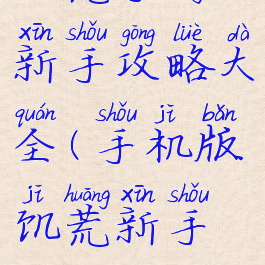 xīn shǒu gōng lüè dà
新手攻略大
quán shǒu jī bǎn
全(手机版
jī huāng xīn shǒu
饥荒新手